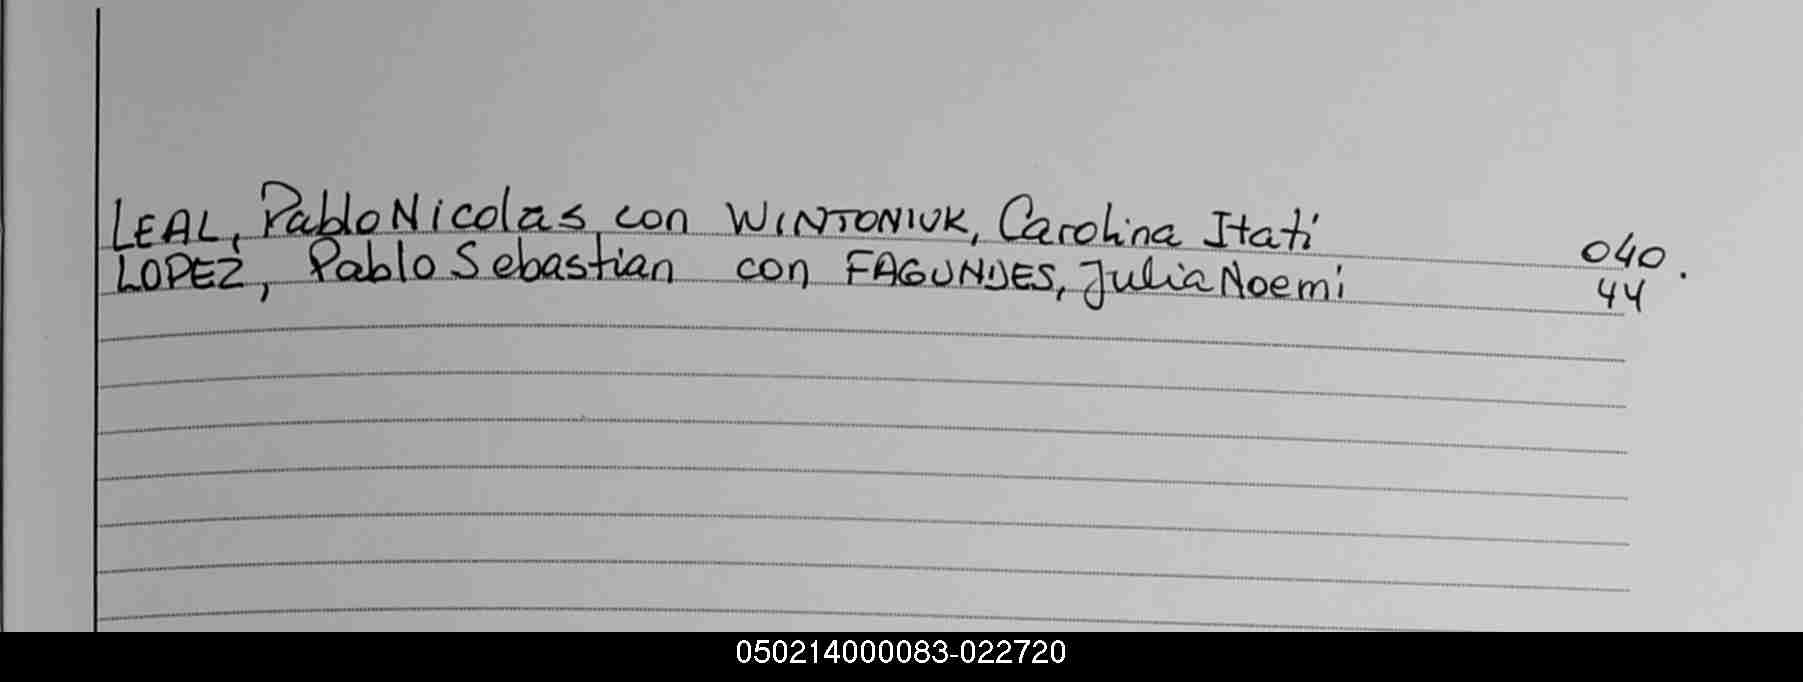 LEAL, Pablo Nicolas con WINTONIUK, Carolina Itatí 040.
LOPEZ, Pablo Sebastian con FAGUNDES, Julia Noemí 44
050214000083-022720